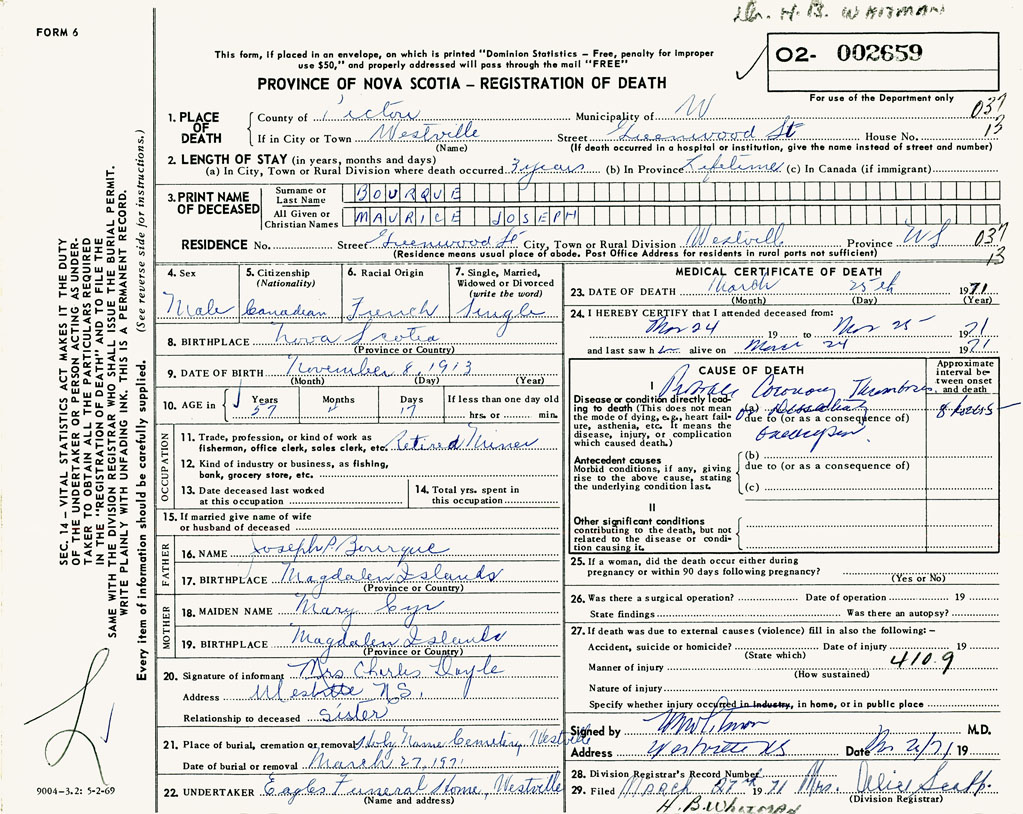 Dr. H. B. WHITMAN
FORM 6
This form, if placed in an envelope, on which is printed "Dominion Statistics – Free, penalty for improper
use $50," and properly addressed will pass through the mail "FREE"
PROVINCE OF NOVA SCOTIA – REGISTRATION OF DEATH
02- 002659
For use of the Department only
1. PLACE OF DEATH
County of Pictou Municipality of W 037
If in City or Town Westville Street Greenwood St House No. 13
(Name) (If death occurred in a hospital or institution, give the name instead of street and number)
2. LENGTH OF STAY (in years, months and days)
(a) In City, Town or Rural Division where death occurred 3 years (b) In Province Lifetime (c) In Canada (if immigrant)
3. PRINT NAME OF DECEASED
Surname or Last Name BOURQUE
All Given or Christian Names MAURICE JOSEPH
RESIDENCE No. Street Greenwood St City, Town or Rural Division Westville Province NS 037
(Residence means usual place of abode. Post Office Address for residents in rural parts not sufficient) 13
4. Sex
Male
5. Citizenship
(Nationality)
Canadian
6. Racial Origin
French
7. Single, Married,
Widowed or Divorced
(write the word)
Single
8. BIRTHPLACE Nova Scotia
(Province or Country)
9. DATE OF BIRTH November 8, 1913
(Month) (Day) (Year)
10. AGE in Years Months Days If less than one day old
57 17 hrs. or min.
OCCUPATION
11. Trade, profession, or kind of work as
fishermen, office clerk, sales clerk, etc. Retired Miner
12. Kind of industry or business, as fishing,
bank, grocery store, etc.
13. Date deceased last worked
at this occupation
14. Total yrs. spent in
this occupation
15. If married give name of wife
or husband of deceased
FATHER
16. NAME Joseph P. Bourque
17. BIRTHPLACE Magdalen Islands
(Province or Country)
MOTHER
18. MAIDEN NAME Mary Cyr
19. BIRTHPLACE Magdalen Islands
(Province or Country)
20. Signature of informant Mrs Charles Doyle
Address Westville N.S.
Relationship to deceased sister
21. Place of burial, cremation or removal Holy Name Cemetery, Westville
Date of burial or removal March 27, 1971
22. UNDERTAKER Eagles Funeral Home, Westville
(Name and address)
MEDICAL CERTIFICATE OF DEATH
23. DATE OF DEATH March 25th 1971
(Month) (Day) (Year)
24. I HEREBY CERTIFY that I attended deceased from:
Mar 24 19 to Mar 25 1971
and last saw h alive on Mar 24 1971
CAUSE OF DEATH
Approximate
interval be-
tween onset
and death
I
Disease or condition directly lead-
ing to death (This does not mean
the mode of dying, e.g., heart fail-
ure, asthenia, etc. It means the
disease, injury, or complication
which caused death.)
Coronary Thrombosis
(a) or Dissecting
due to (or as a consequence of)
8 hours
Antecedent causes
Morbid conditions, if any, giving
rise to the above cause, stating
the underlying condition last.
(b)
due to (or as a consequence of)
(c)
II
Other significant conditions
contributing to the death, but not
related to the disease or condi-
tion causing it.
25. If a woman, did the death occur either during
pregnancy or within 90 days following pregnancy?
(Yes or No)
26. Was there a surgical operation? Date of operation 19
State findings Was there an autopsy?
27. If death was due to external causes (violence) fill in also the following: –
Accident, suicide or homicide? Date of injury 19
(State which)
Manner of injury 410.9
(How sustained)
Nature of injury
Specify whether injury occurred in industry, in home, or in public place
Signed by M.D.
Address Westville NS Date 19
28. Division Registrar's Record Number
29. Filed MARCH 27th 1971 Mrs. Alice
(Division Registrar)
H. B. WHITMAN
SEC. 14 – VITAL STATISTICS ACT MAKES IT THE DUTY
OF THE UNDERTAKER OR PERSON ACTING AS UNDER-
TAKER TO OBTAIN ALL THE PARTICULARS REQUIRED
IN THE "REGISTRATION OF DEATH" AND TO FILE THE
SAME WITH THE DIVISION REGISTRAR WHO SHALL ISSUE THE BURIAL PERMIT.
WRITE PLAINLY WITH UNFADING INK. THIS IS A PERMANENT RECORD.
Every item of information should be carefully supplied. (See reverse side for instructions.)
9004–3.2: 5-2-69